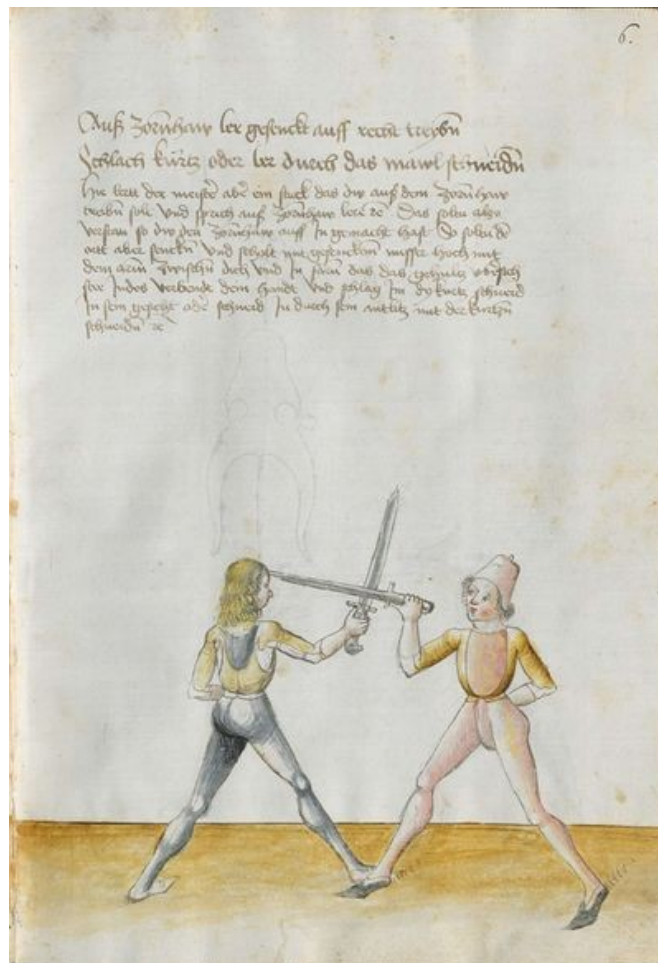 6.
Auß zornhaw ler gesenckt auff recht treybn
Schlach kurtz oder ler durch das mawl schneidn
Hie lert der meister aber ein stuck das dw auß dem zornhaw
treibn solt Vnd spricht auß zornhaw lere &c Das soltu also
verstan so dw den zornhaw auff In gemacht hast So soltu dē
ort aber senckn Vnd mit gesencktem messer hoch mit
dem arm zwischn dich vnd In das das gehultz
Indes dein Vnd schlag Im dy kurtz schneid
In sein gesicht oder schneid In durch sein antlitz mit der kurtzn
schneidn &c